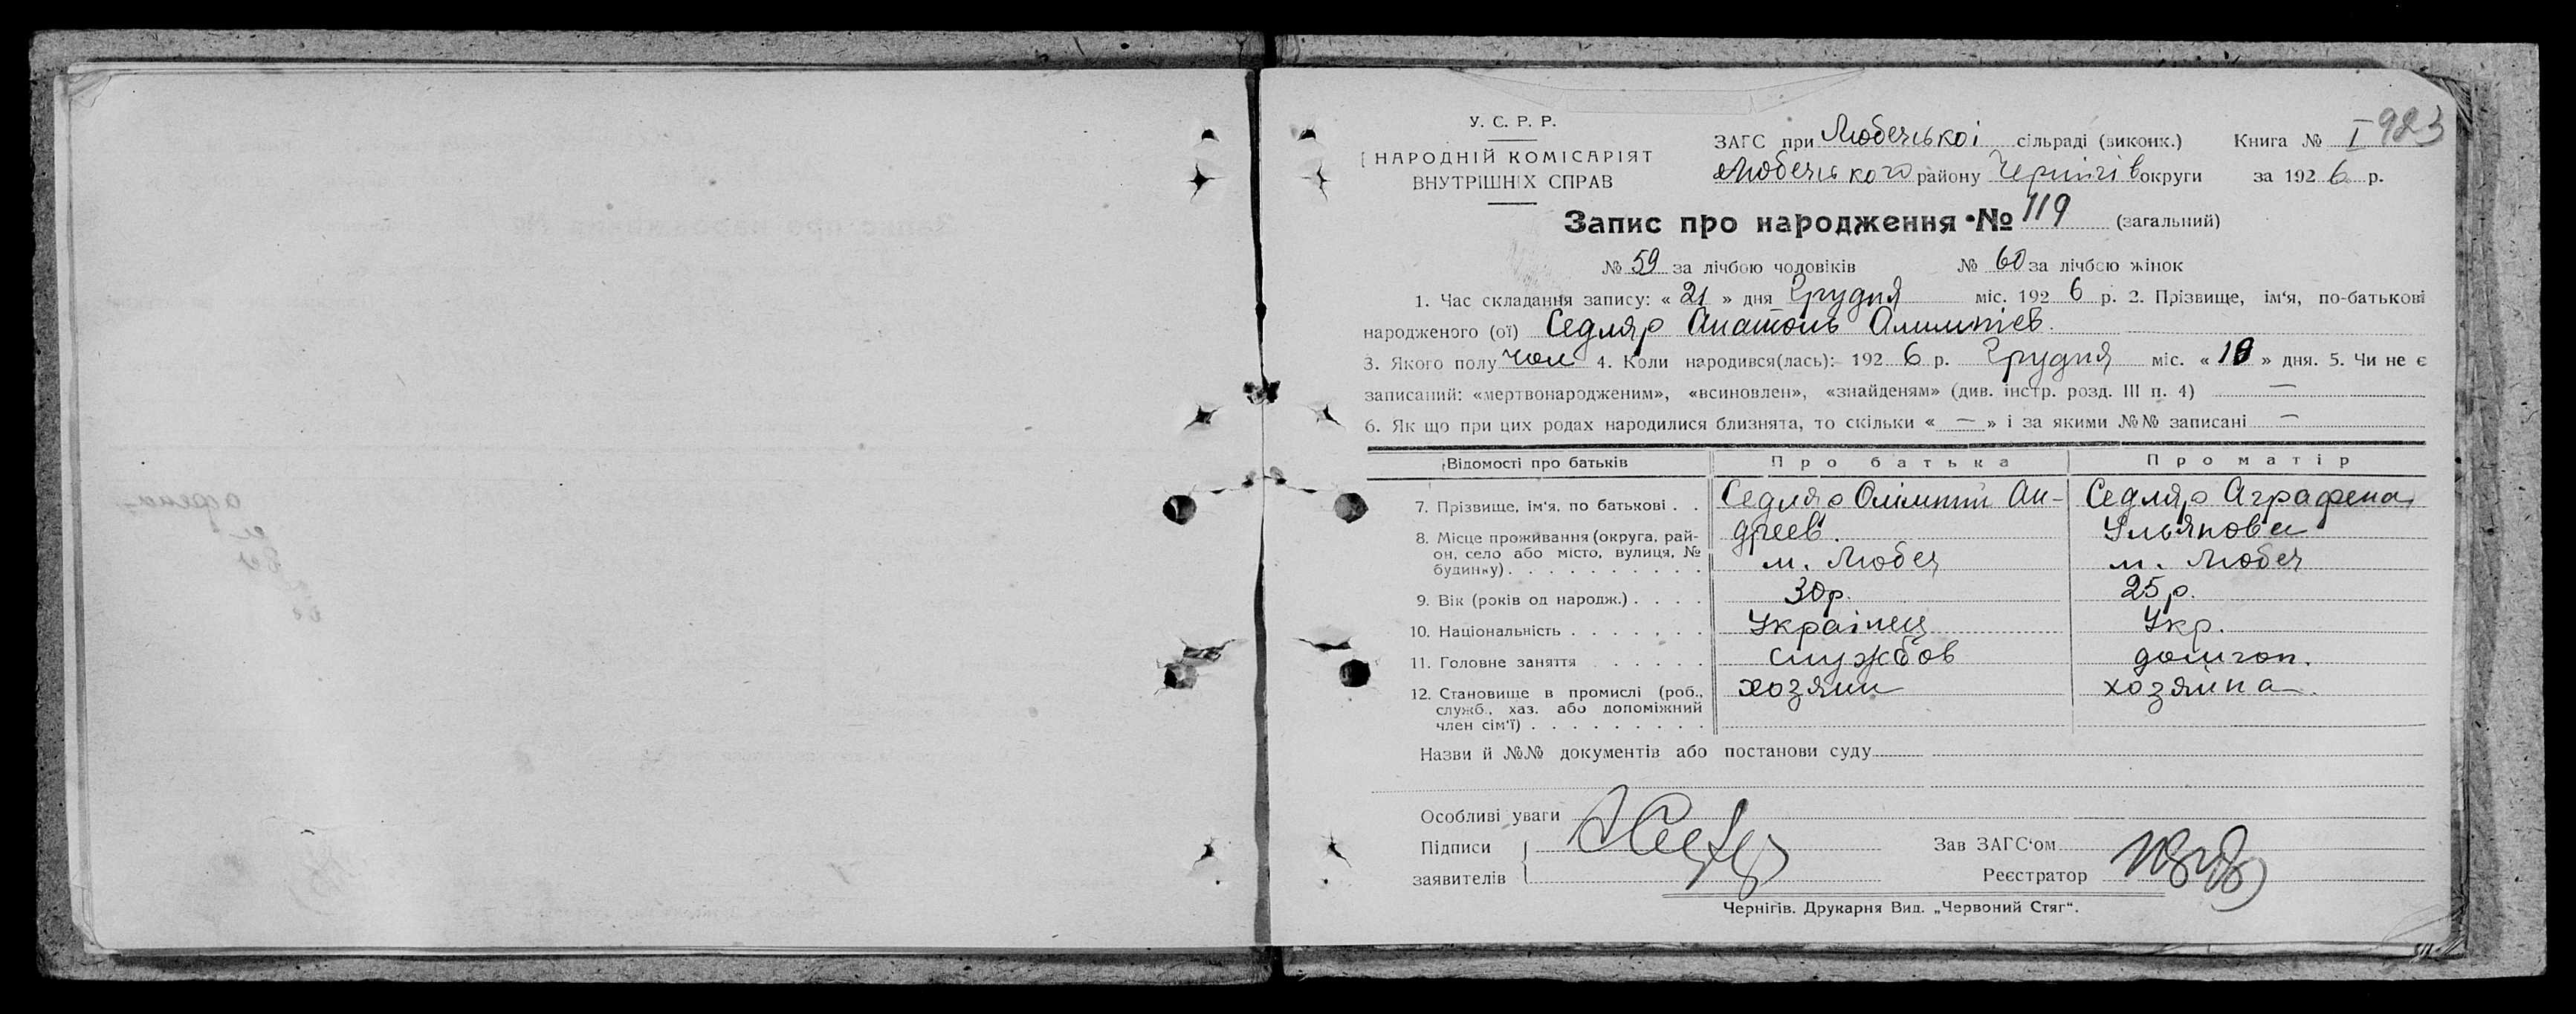 У. С. Р. Р.
НАРОДНІЙ КОМІСАРІЯТ
ВНУТРІШНІХ СПРАВ
ЗАГС при Любечської сільраді (виконк.) Книга № I 923
Любечського району Чернігів округи за 1926 р.
Запис про народження №119 (загальний)
№ 59 за лічбою чоловіків № 60 за лічбою жінок
1. Час складання запису: « 21 » дня Грудня міс. 1926 р. 2. Прізвище, ім'я, по-батькові
народженого (ої) Седляр Анатоль Олимпіев.
3. Якого полу Чол 4. Коли народився(лась): 1926 р. Грудня міс. « 19 » дня. 5. Чи не є
записаний: «мертвонародженим», «всиновлен», «знайденям» (див. інстр. розд. III п. 4) —
6. Як що при цих родах народилися близнята, то скільки « — » і за якими №№ записані —
Відомості про батьків Про батька Про матір
7. Прізвище, ім'я, по батькові . . Седляр Олімпій Ан- Седляр Аграфена
дреев. Ульянова
8. Місце проживання (округа, рай-
он, село або місто, вулиця, №
будинку) . . . . . . . . . . м. Любеч м. Любеч
9. Вік (років од народж.) . . . . 30 р. 25 р.
10. Національність . . . . . . . Українец Укр.
11. Головне заняття . . . . . . службов домгосп.
12. Становище в промислі (роб., хозяин хозяйка
служб., хаз. або допоміжний
член сім'ї) . . . . . . . . .
Назви й №№ документів або постанови суду
Особливі уваги
Підписи
заявителів
Зав ЗАГС'ом
Реєстратор
Чернігів. Друкарня Вид. „Червоний Стяг".